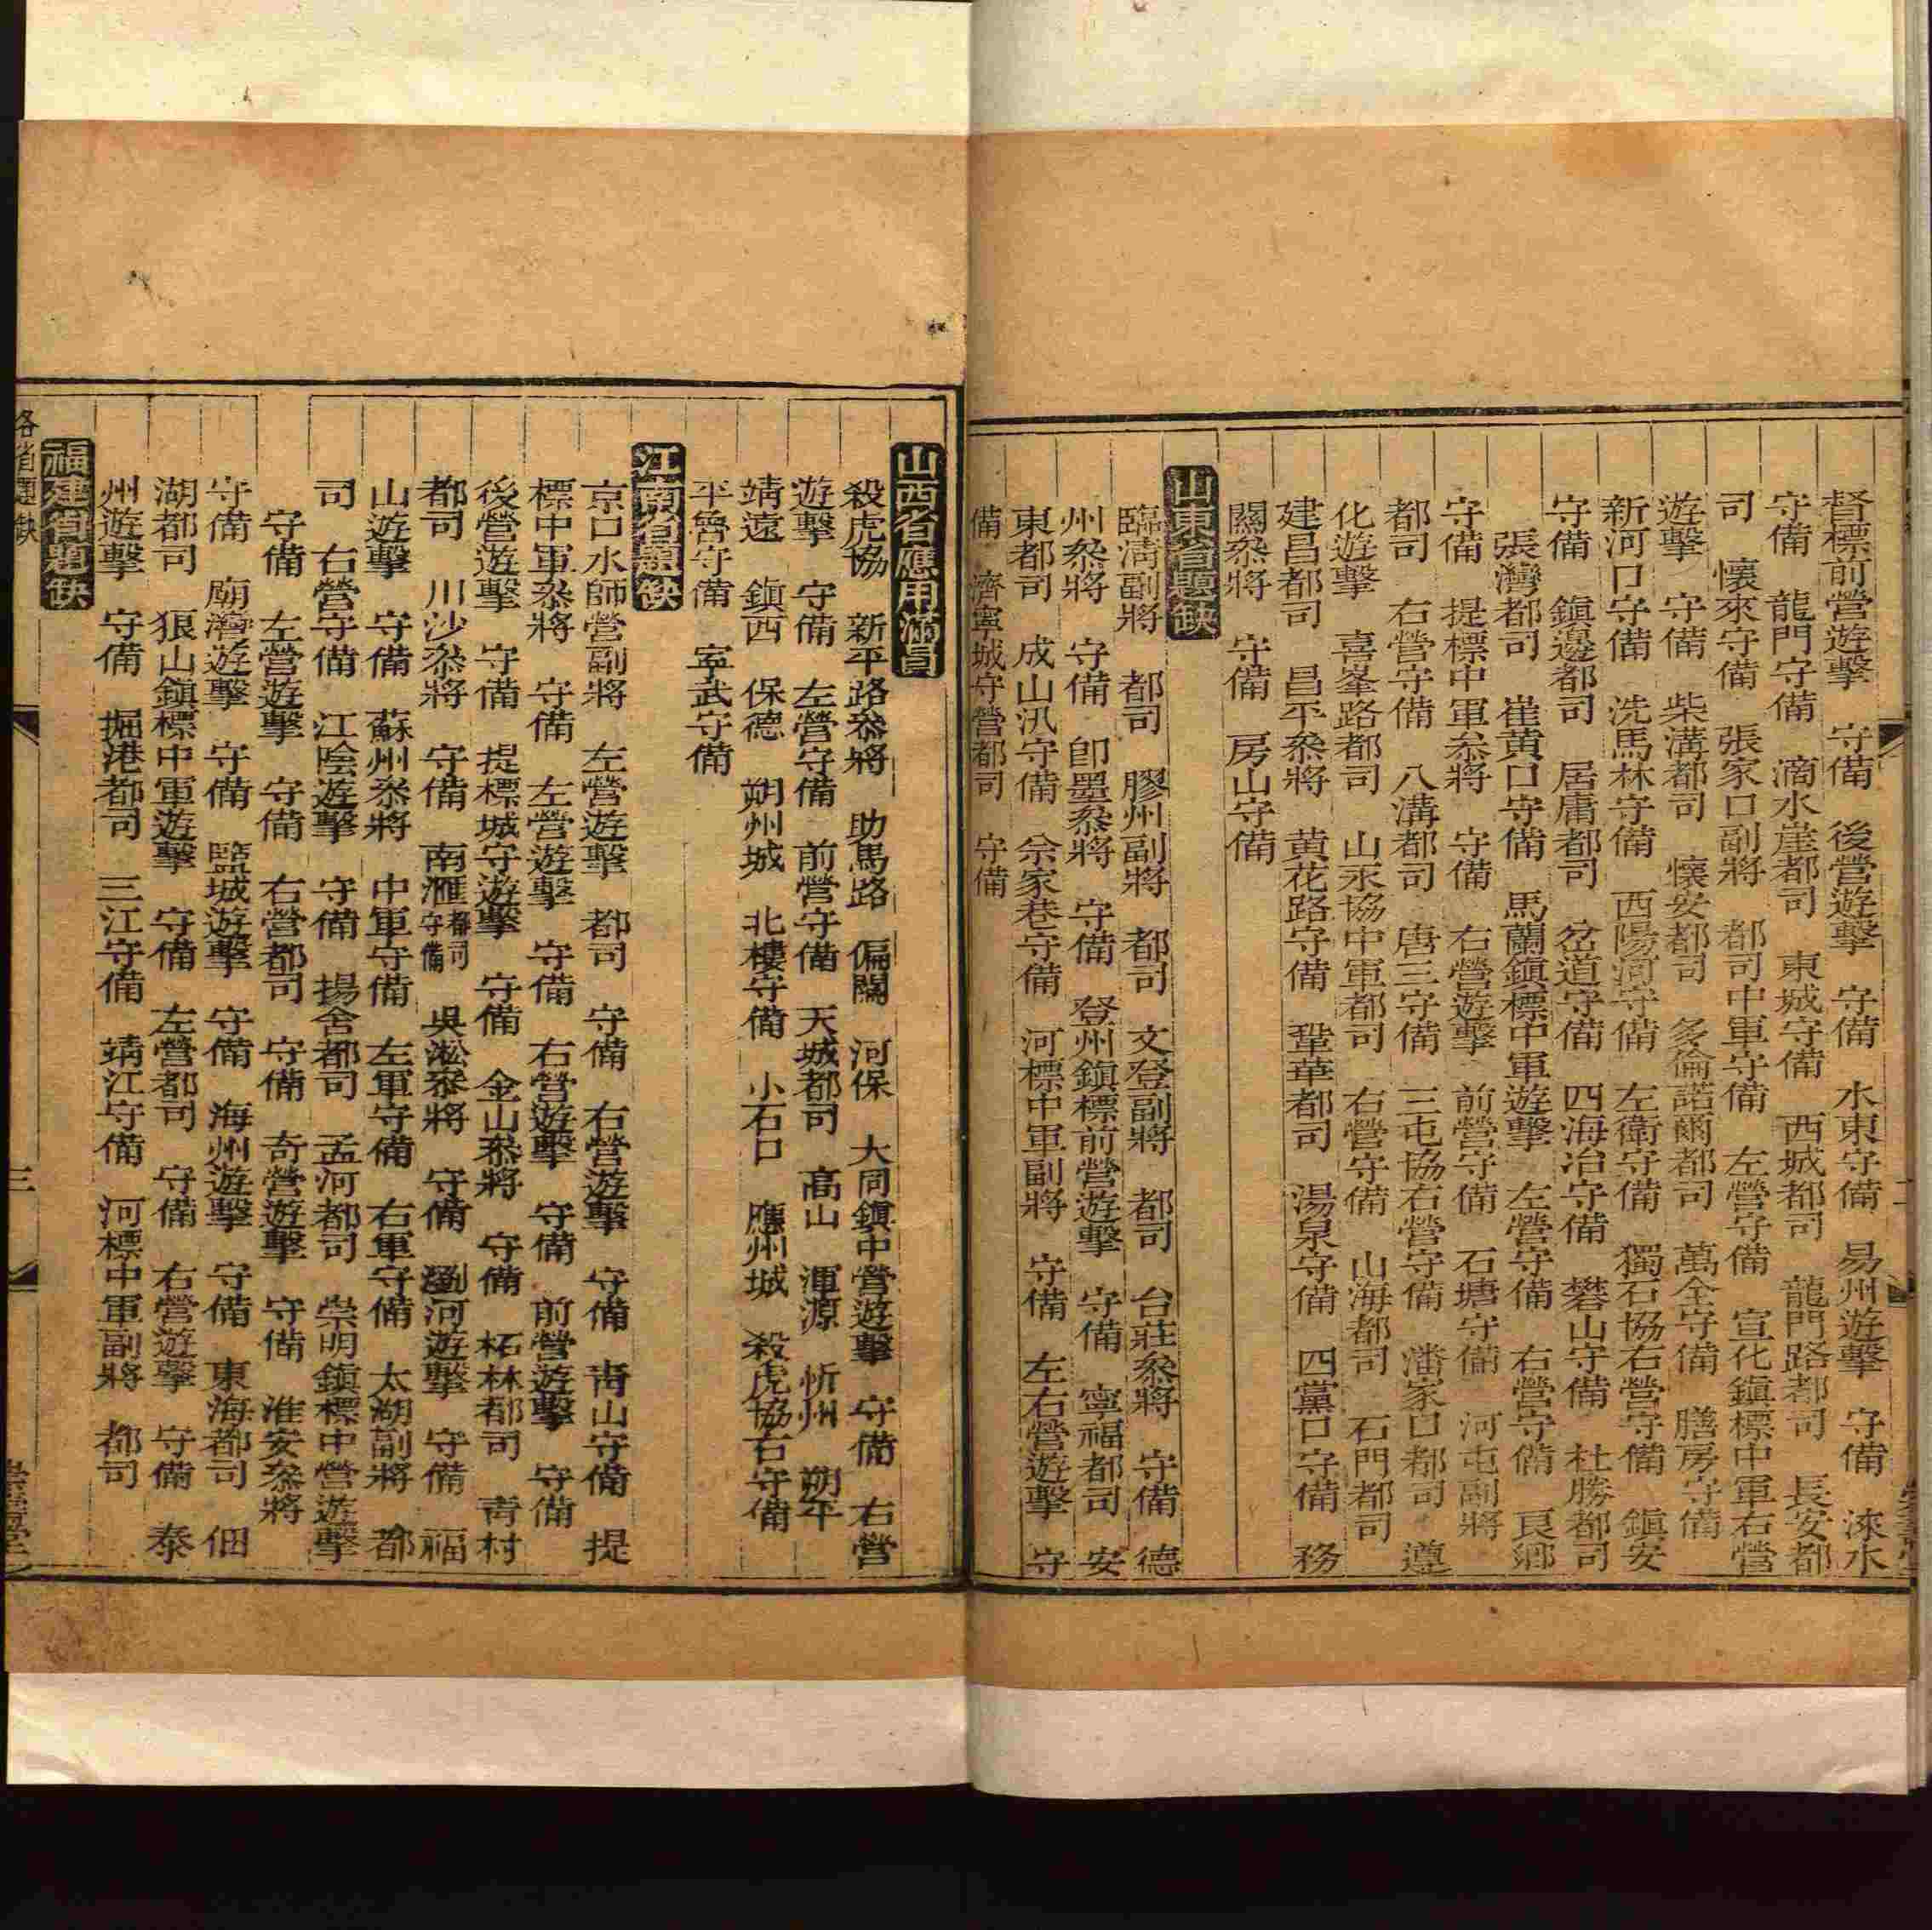 督標前營遊擊　守備　後營遊擊　守備　水東守備　易州遊擊　守備　淶水
守備　龍門守備　滴水崖都司　東城守備　西城都司　龍門路都司　長安都
司　懷來守備　張家口副將　都司中軍守備　左營守備　宣化鎭標中軍右營
遊擊　守備　柴溝都司　懷安都司　多倫諾爾都司　萬全守備　膳房守備
新河口守備　洗馬林守備　西陽河守備　左衛守備　獨石協右營守備　鎭安
守備　鎭邊都司　居庸都司　岔道守備　四海冶守備　礬山守備　杜勝都司
張灣都司　崔黄口守備　馬蘭鎭標中軍遊擊　左營守備　右營守備　良鄉
守備　提標中軍叅將　守備　右營遊擊　前營守備　石塘守備　河屯副將
都司　右營守備　八溝都司　唐三守備　三屯協右營守備　潘家口都司　遵
化遊擊　喜峯路都司　山永協中軍都司　右營守備　山海都司　石門都司
建昌都司　昌平叅將　黄花路守備　鞏華都司　湯泉守備　四黨口守備　務
關叅將　守備　房山守備
山東省題缺
臨淸副將　都司　膠州副將　都司　文登副將　都司　台莊叅將　守備　德
州叅將　守備　卽墨叅將　守備　登州鎭標前營遊擊　守備　寧福都司　安
東都司　成山汛守備　佘家巷守備　河標中軍副將　守備　左右營遊擊　守
備　濟寧城守營都司　守備
山西省應用滿員
殺虎協　新平路叅將　助馬路　偏關　河保　大同鎭中營遊擊　守備　右營
遊擊　守備　左營守備　前營守備　天城都司　高山　渾源　忻州　朔平
靖遠　鎭西　保德　朔州城　北樓守備　小石口　應州城　殺虎協右守備
平魯守備　寧武守備
江南省題缺
京口水師營副將　左營遊擊　都司　守備　右營遊擊　守備　靑山守備　提
標中軍叅將　守備　左營遊擊　守備　右營遊擊　守備　前營遊擊　守備
後營遊擊　守備　提標城守遊擊　守備　金山叅將　守備　柘林都司　靑村
都司　川沙叅將　守備　南滙都司守備　吳淞叅將　守備　劉河遊擊　守備　福
山遊擊　守備　蘇州叅將　中軍守備　左軍守備　右軍守備　太湖副將　都
司　右營守備　江陰遊擊　守備　揚舍都司　孟河都司　崇明鎭標中營遊擊
守備　左營遊擊　守備　右營都司　守備　奇營遊擊　守備　淮安叅將
守備　廟灣遊擊　守備　監城遊擊　守備　海州遊擊　守備　東海都司　佃
湖都司　狼山鎭標中軍遊擊　守備　左營都司　守備　右營遊擊　守備　泰
州遊擊　守備　掘港都司　三江守備　靖江守備　河標中軍副將　都司
福建省題缺
各省題缺　三